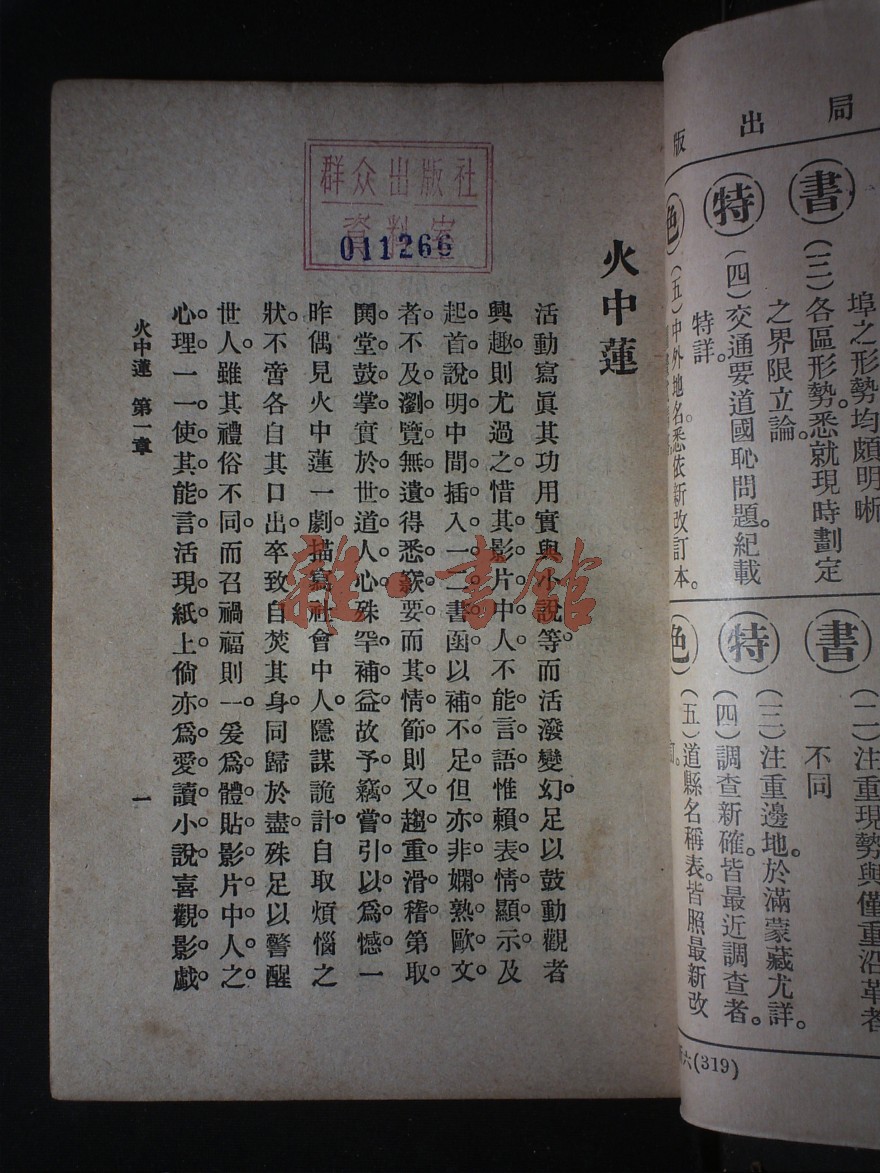 局出版
書特色
埠之形勢均頗明晰
(三)各區形勢。悉就現時劃定
之界限立論。
(四)交通要道國恥問題。紀載
特詳。
(五)中外地名。悉依新改訂本。
書特色
(二)注重現勢與僅重沿革者
不同
(三)注重邊地。於滿蒙藏尤詳。
(四)調查新確。皆最近調查者。
(五)道縣名稱表。皆照最新改
訂。
六(319)
群众出版社
資料室
011266
火中蓮
活動寫眞其功用實與小說等。而活潑變幻。足以鼓動觀者
興趣。則尤過之惜其影片中人不能言語惟賴表情顯示及
起首說明中間插入一二書函以補不足但亦非嫻熟歐文。
者不及瀏覽無遺得悉窾要而其情節則又趨重滑稽第取。
鬨堂鼓掌實於世道人心殊罕補益故予竊嘗引以爲憾一
昨偶見火中蓮一劇。描寫社會中人。隱謀詭計。自取煩惱之
狀。不啻各自其口出。卒致自焚其身。同歸於盡。殊足以警醒
世人。雖其禮俗不同。而召禍福則一。爰爲體貼影片中人之
心理。一一使其能言活現紙上倘亦爲愛讀小說喜觀影戲
火中蓮　第一章
一
雜·書館